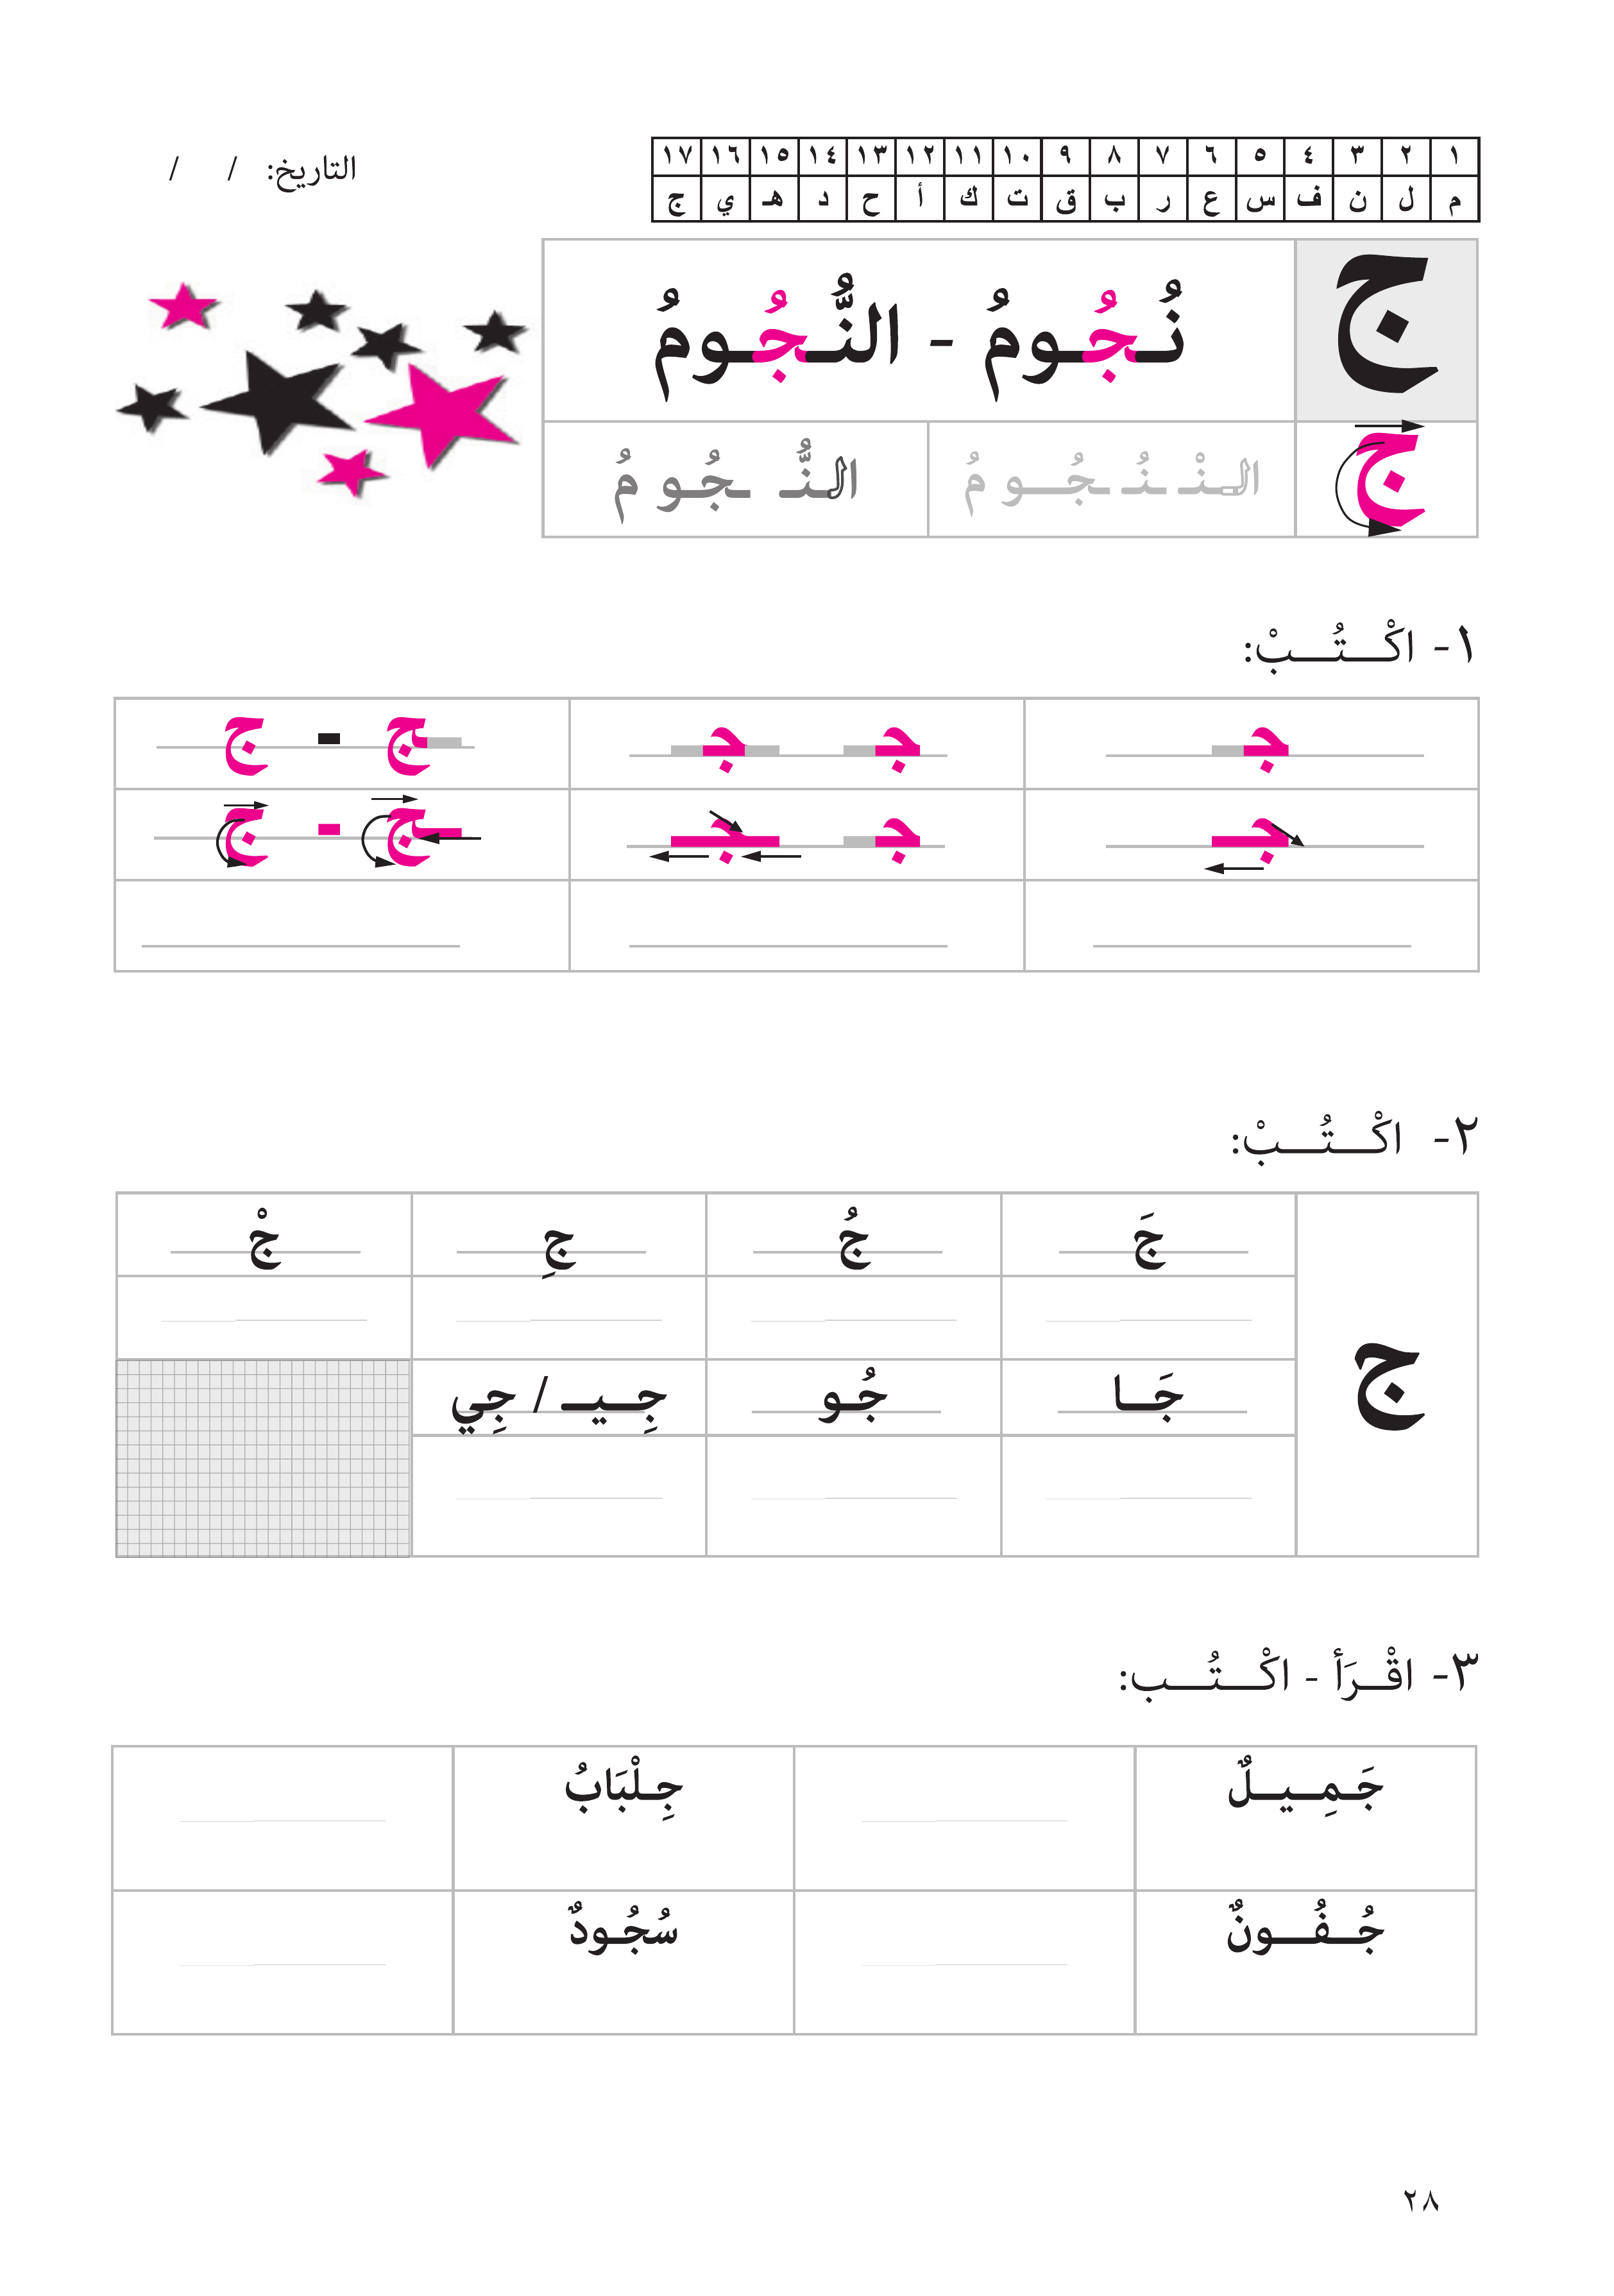 التاريخ: / /
١ ٢ ٣ ٤ ٥ ٦ ٧ ٨ ٩ ١٠ ١١ ١٢ ١٣ ١٤ ١٥ ١٦ ١٧
م ل ن ف س ع ر ب ق ت ك أ ح د هـ ي ج
ج نُـجُـومُ - النُّـجُـومُ
ج الـنْـ نُـ ـجُـو مُ النُّـ ـجُـو مُ
١- اكْـتُـبْ:
جـ جـ ـجـ ـج - ج
جـ جـ ـجـ ـج - ج
٢- اكْـتُـبْ:
ج
جَ جُ جِ جْ
جَـا جُـو جِـيـ / جِي
٣- اقْـرَأ - اكْـتُـب:
جَـمِـيـلٌ جِـلْبَابُ
جُـفُـونٌ سُجُـودٌ
٢٨